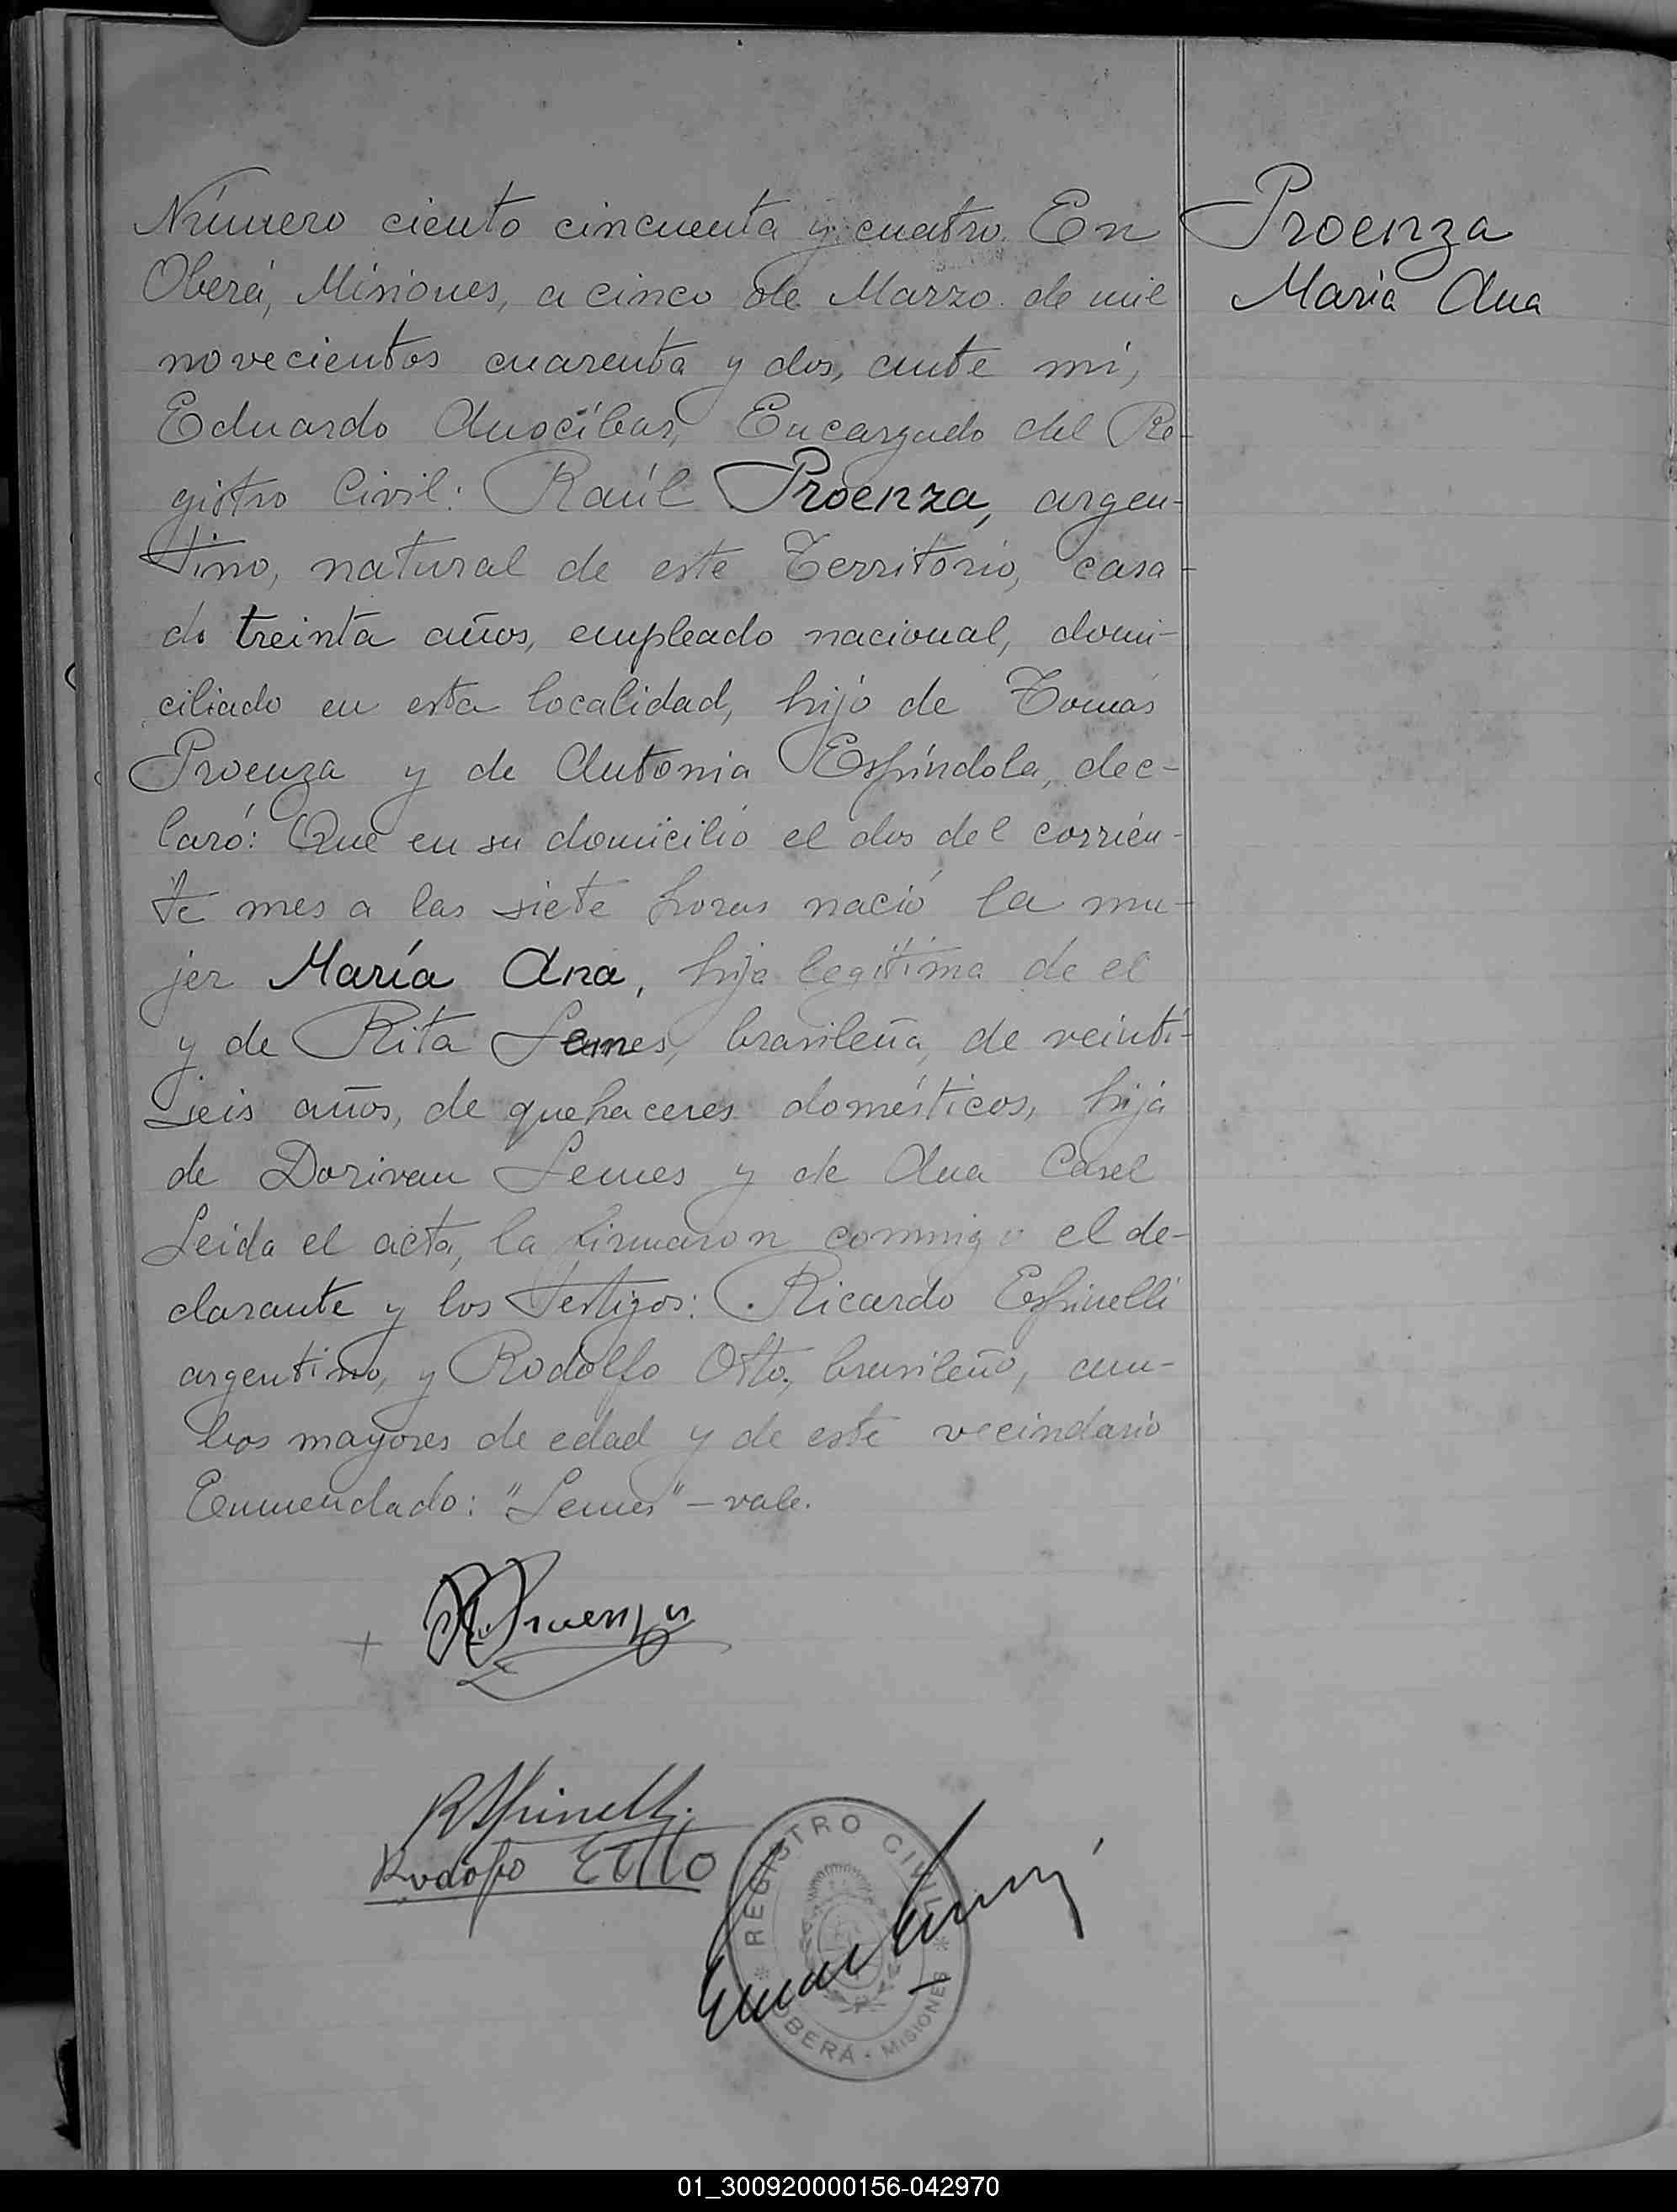 Número ciento cincuenta y cuatro. En
Oberá, Misiones, a cinco de Marzo de mil
novecientos cuarenta y dos, ante mí,
Eduardo Anocíbar, Encargado del Re-
gistro Civil: Raúl Proenza, argen-
tino, natural de este Territorio, casa-
do treinta años, empleado nacional, domi-
ciliado en esta localidad, hijo de Tomás
Proenza y de Antonia Espíndola, dec-
laró: Que en su domicilio el dos del corrien-
te mes a las siete horas nació la mu-
jer María Ana, hija legítima de el
y de Rita Lemes, brasileña, de veinti-
seis años, de quehaceres domésticos, hija
de Dorivan Lemes y de Ana Casel
Leida el acta, la firmaron conmigo el de-
clarante y los testigos: Ricardo Espinelli
argentino, y Rodolfo Otto, brasileño, am-
bos mayores de edad y de este vecindario
Enmendado: "Lemes" – vale.
Proenza
María Ana
R. Proenza
REspinelli
Rodolfo Otto
REGISTRO CIVIL
OBERÁ - MISIONES
01_300920000156-042970